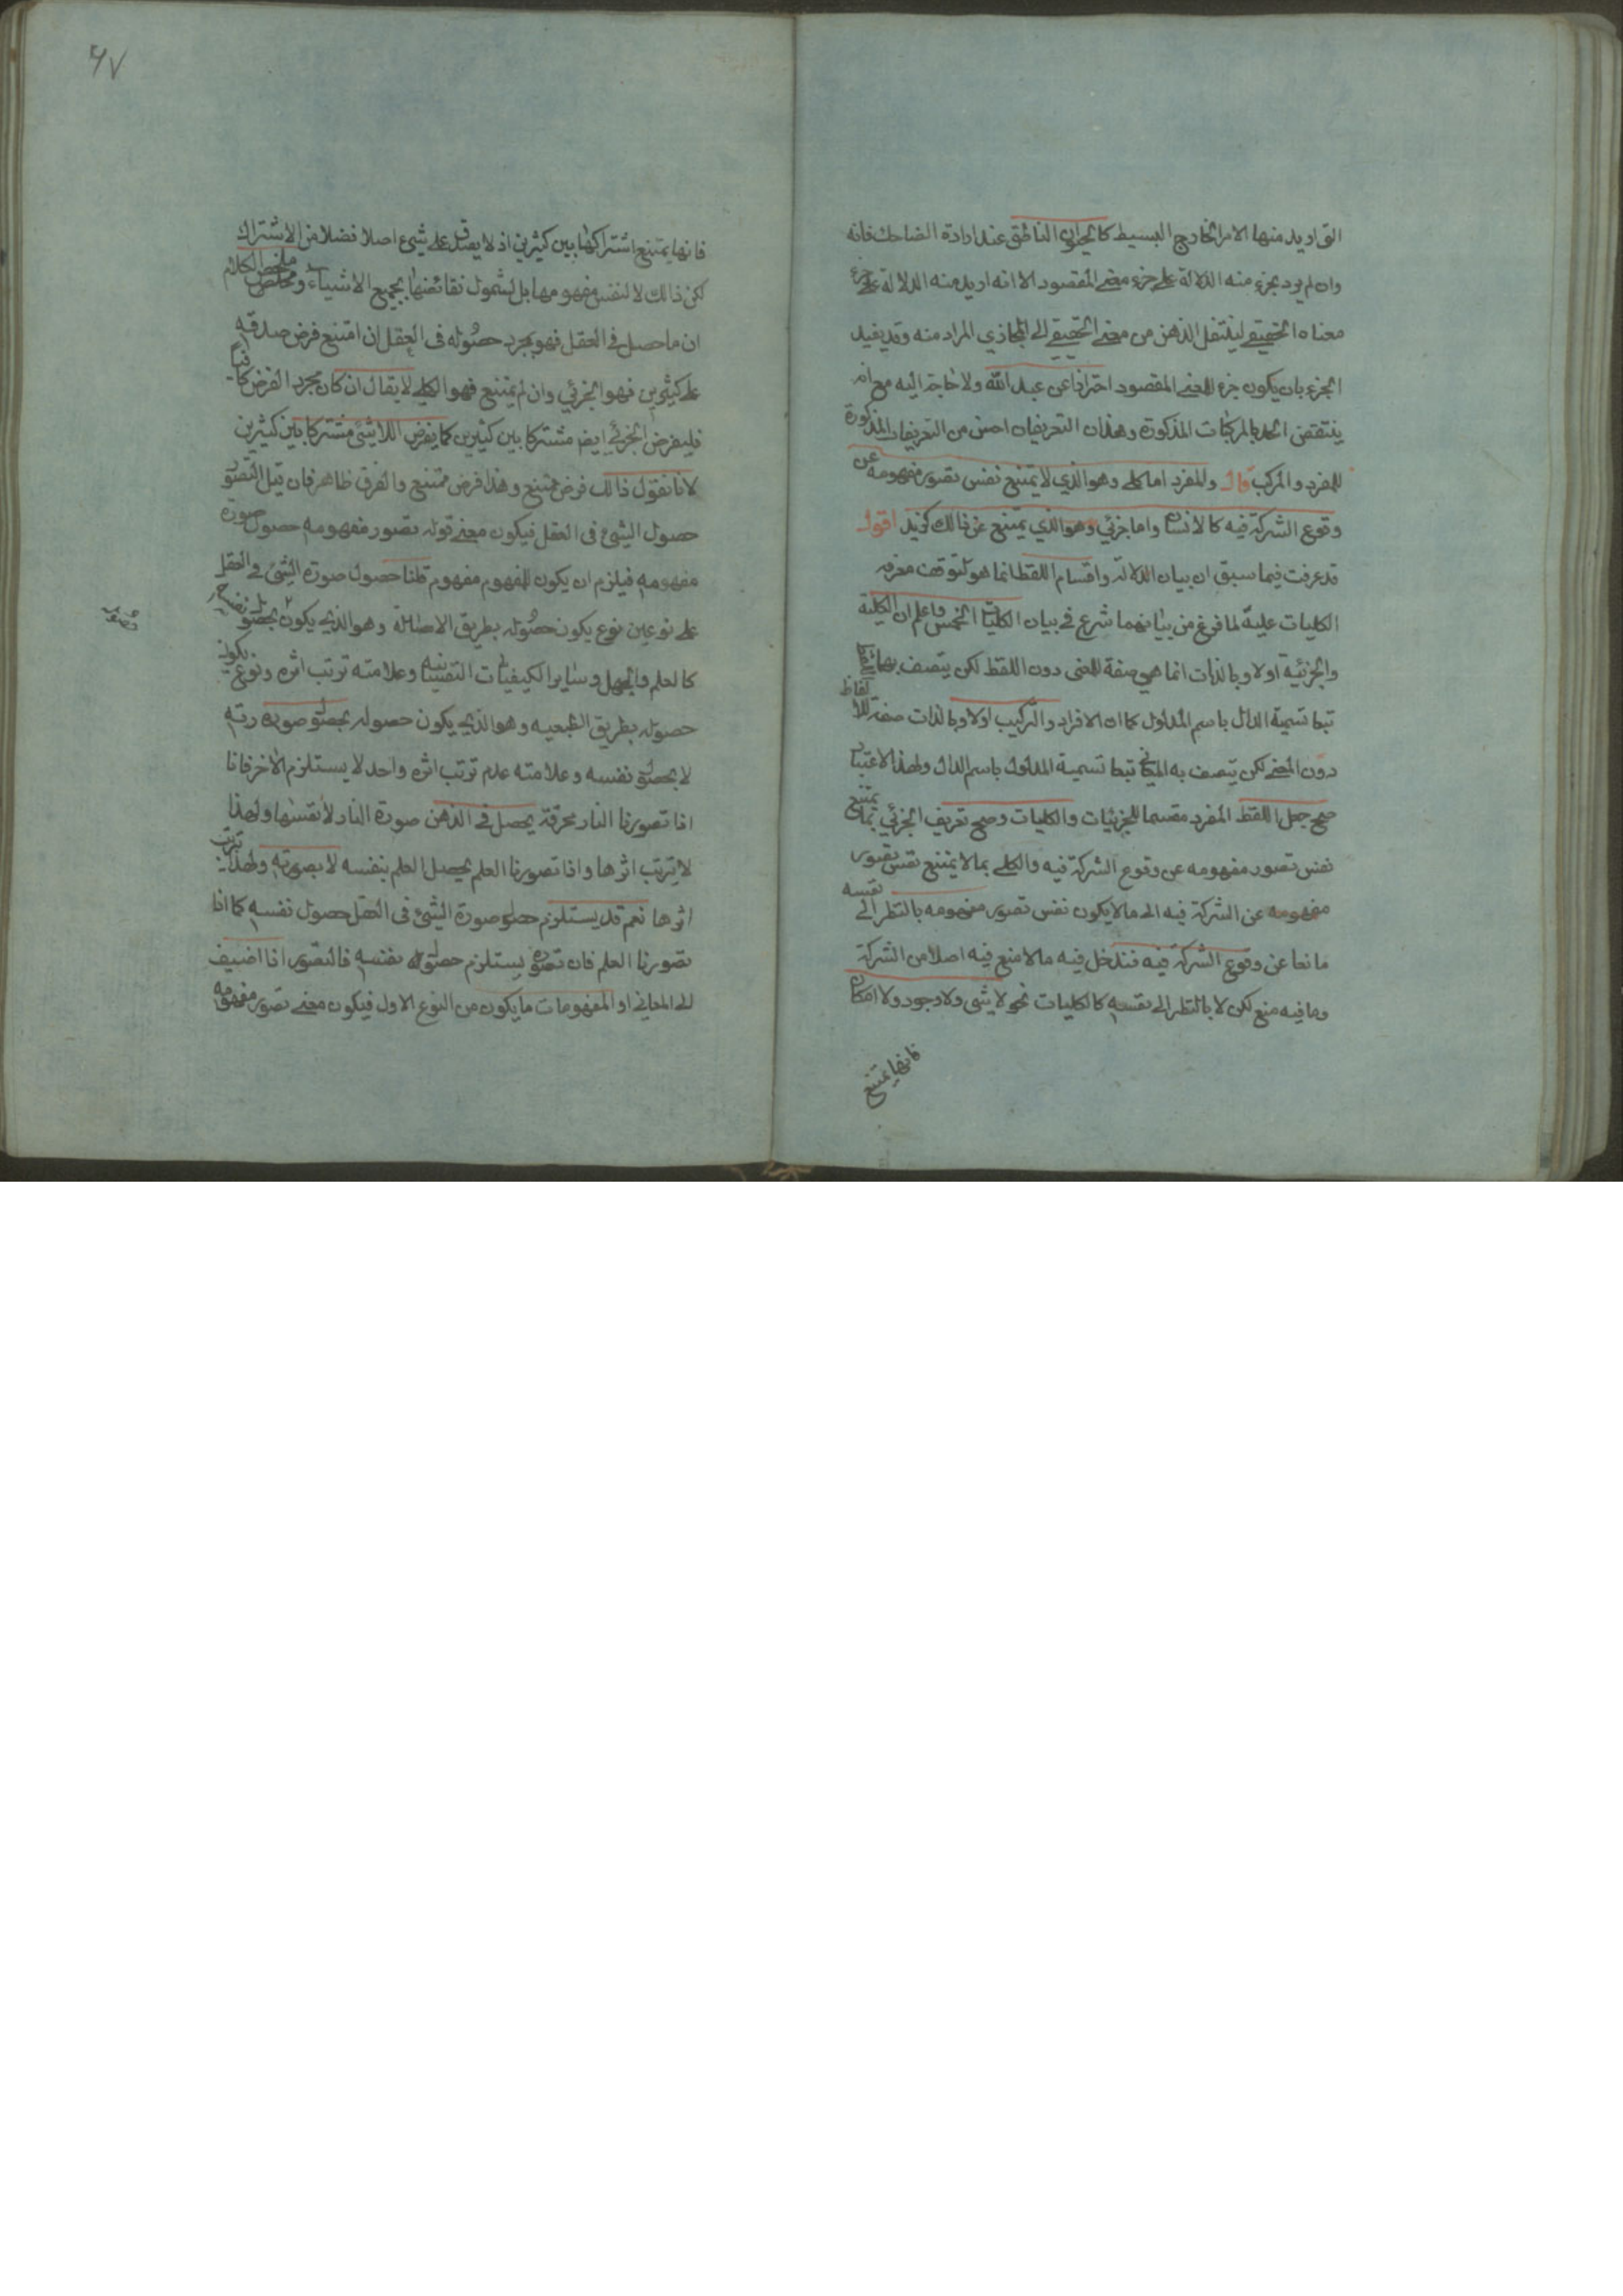 التي اريد منها الامر الخارج البسيط كالحيوان الناطق عند ارادة الضاحك فانه
وان لم يرد بجزء منه الدلالة على جزء معنى المقصود الا انه اريد منه الدلالة على جزء
معناه الحقيقي لينتقل الذهن من معنى الحقيقي الى المجازي المراد منه وقد يفيد
الجزء بان يكون جزء للمعنى المقصود احترازا عن عبد الله ولا حاجة اليه مع انه
ينتقض الحد بالمركبات المذكورة وهذان التعريفان احسن من التعريفات المذكورة
للمفرد والمركب قال والمفرد اما كلي وهو الذي لا يمتنع نفس تصور مفهومه عن
وقوع الشركة فيه كالانسان واما جزئي وهو الذي يمتنع عن ذالك كزيد اقول
قد عرفت فيما سبق ان بيان الدلالة واقسام اللفظ انما هو لتوقف معرفة
الكليات عليه لما فرغ من بيانهما شرع في بيان الكليات الخمس فاعلم ان الكلية
والجزئية اولا وبالذات انما هي صفة للمعنى دون اللفظ لكن يتصف بهما
تبعا تسمية الدال باسم المدلول كما ان الافراد والتركيب اولا وبالذات صفة للالفاظ
دون المعنى لكن يتصف به المعاني تبعا تسمية المدلول باسم الدال ولهذا الاعتبار
صح جعل اللفظ المفرد مقسما للجزئيات والكليات وصح تعريف الجزئي بما يمتنع
نفس تصور مفهومه عن وقوع الشركة فيه والكلي بما لا يمتنع نفس تصور
مفهومه عن الشركة فيه الى ما لا يكون نفس تصور مفهومه بالنظر الى نفسه
مانعا عن وقوع الشركة فيه فتدخل فيه ما لا منع فيه اصلا من الشركة
وما فيه منع لكن لا بالنظر الى نفسه كالكليات نحو لا شي ولا وجود ولا امكان
فانها يمتنع
٦٧
فانها يمتنع اشتراكها بين كثيرين اذ لا يصدق على شيء اصلا فضلا من الاشتراك
لكن ذالك لا لنفس مفهومها بل لشمول نقائضها بجميع الاشياء وملخص الكلام
ان ما حصل في العقل فهو بمجرد حصوله في العقل ان امتنع فرض صدقه
على كثيرين فهو الجزئي وان لم يمتنع فهو الكلي لا يقال ان كان مجرد الفرض كافيا
فليفرض الجزئي ايضا مشتركا بين كثيرين كما يفرض اللاشئ مشتركا بين كثيرين
لانا نقول ذالك فرض ممتنع وهذا فرض ممتنع والفرق ظاهر فان قيل التصور
حصول الشئ في العقل فيكون معنى قوله تصور مفهومه حصول صورة
مفهومه فيلزم ان يكون للمفهوم مفهوم قلنا حصول صورة الشئ في العقل
على نوعين نوع يكون حصوله بطريق الاصالة وهو الذي يكون بحصول نفسه
كالعلم والجهل وساير الكيفيات النفسانية وعلامته ترتب اثره ونوع يكون
حصوله بطريق الطبعيه وهو الذي يكون حصوله بحصول صورته
لا بحصول نفسه وعلامته عدم ترتب اثره واحد لا يستلزم الاخر فانا
اذا تصورنا النار محرقة يحصل في الذهن صورة النار لا نفسها ولهذا
لا يترتب اثرها واذا تصورنا العلم يحصل العلم بنفسه لا بصورته ولهذا يترتب
اثرها نعم قد يستلزم حصول صورة الشئ في العقل حصول نفسه كما اذا
تصورنا العلم فان تصوره يستلزم حصول نفسه فالتصور اذا اضيف
الى المعاني او المفهومات ما يكون من النوع الاول فيكون معنى تصور مفهومه